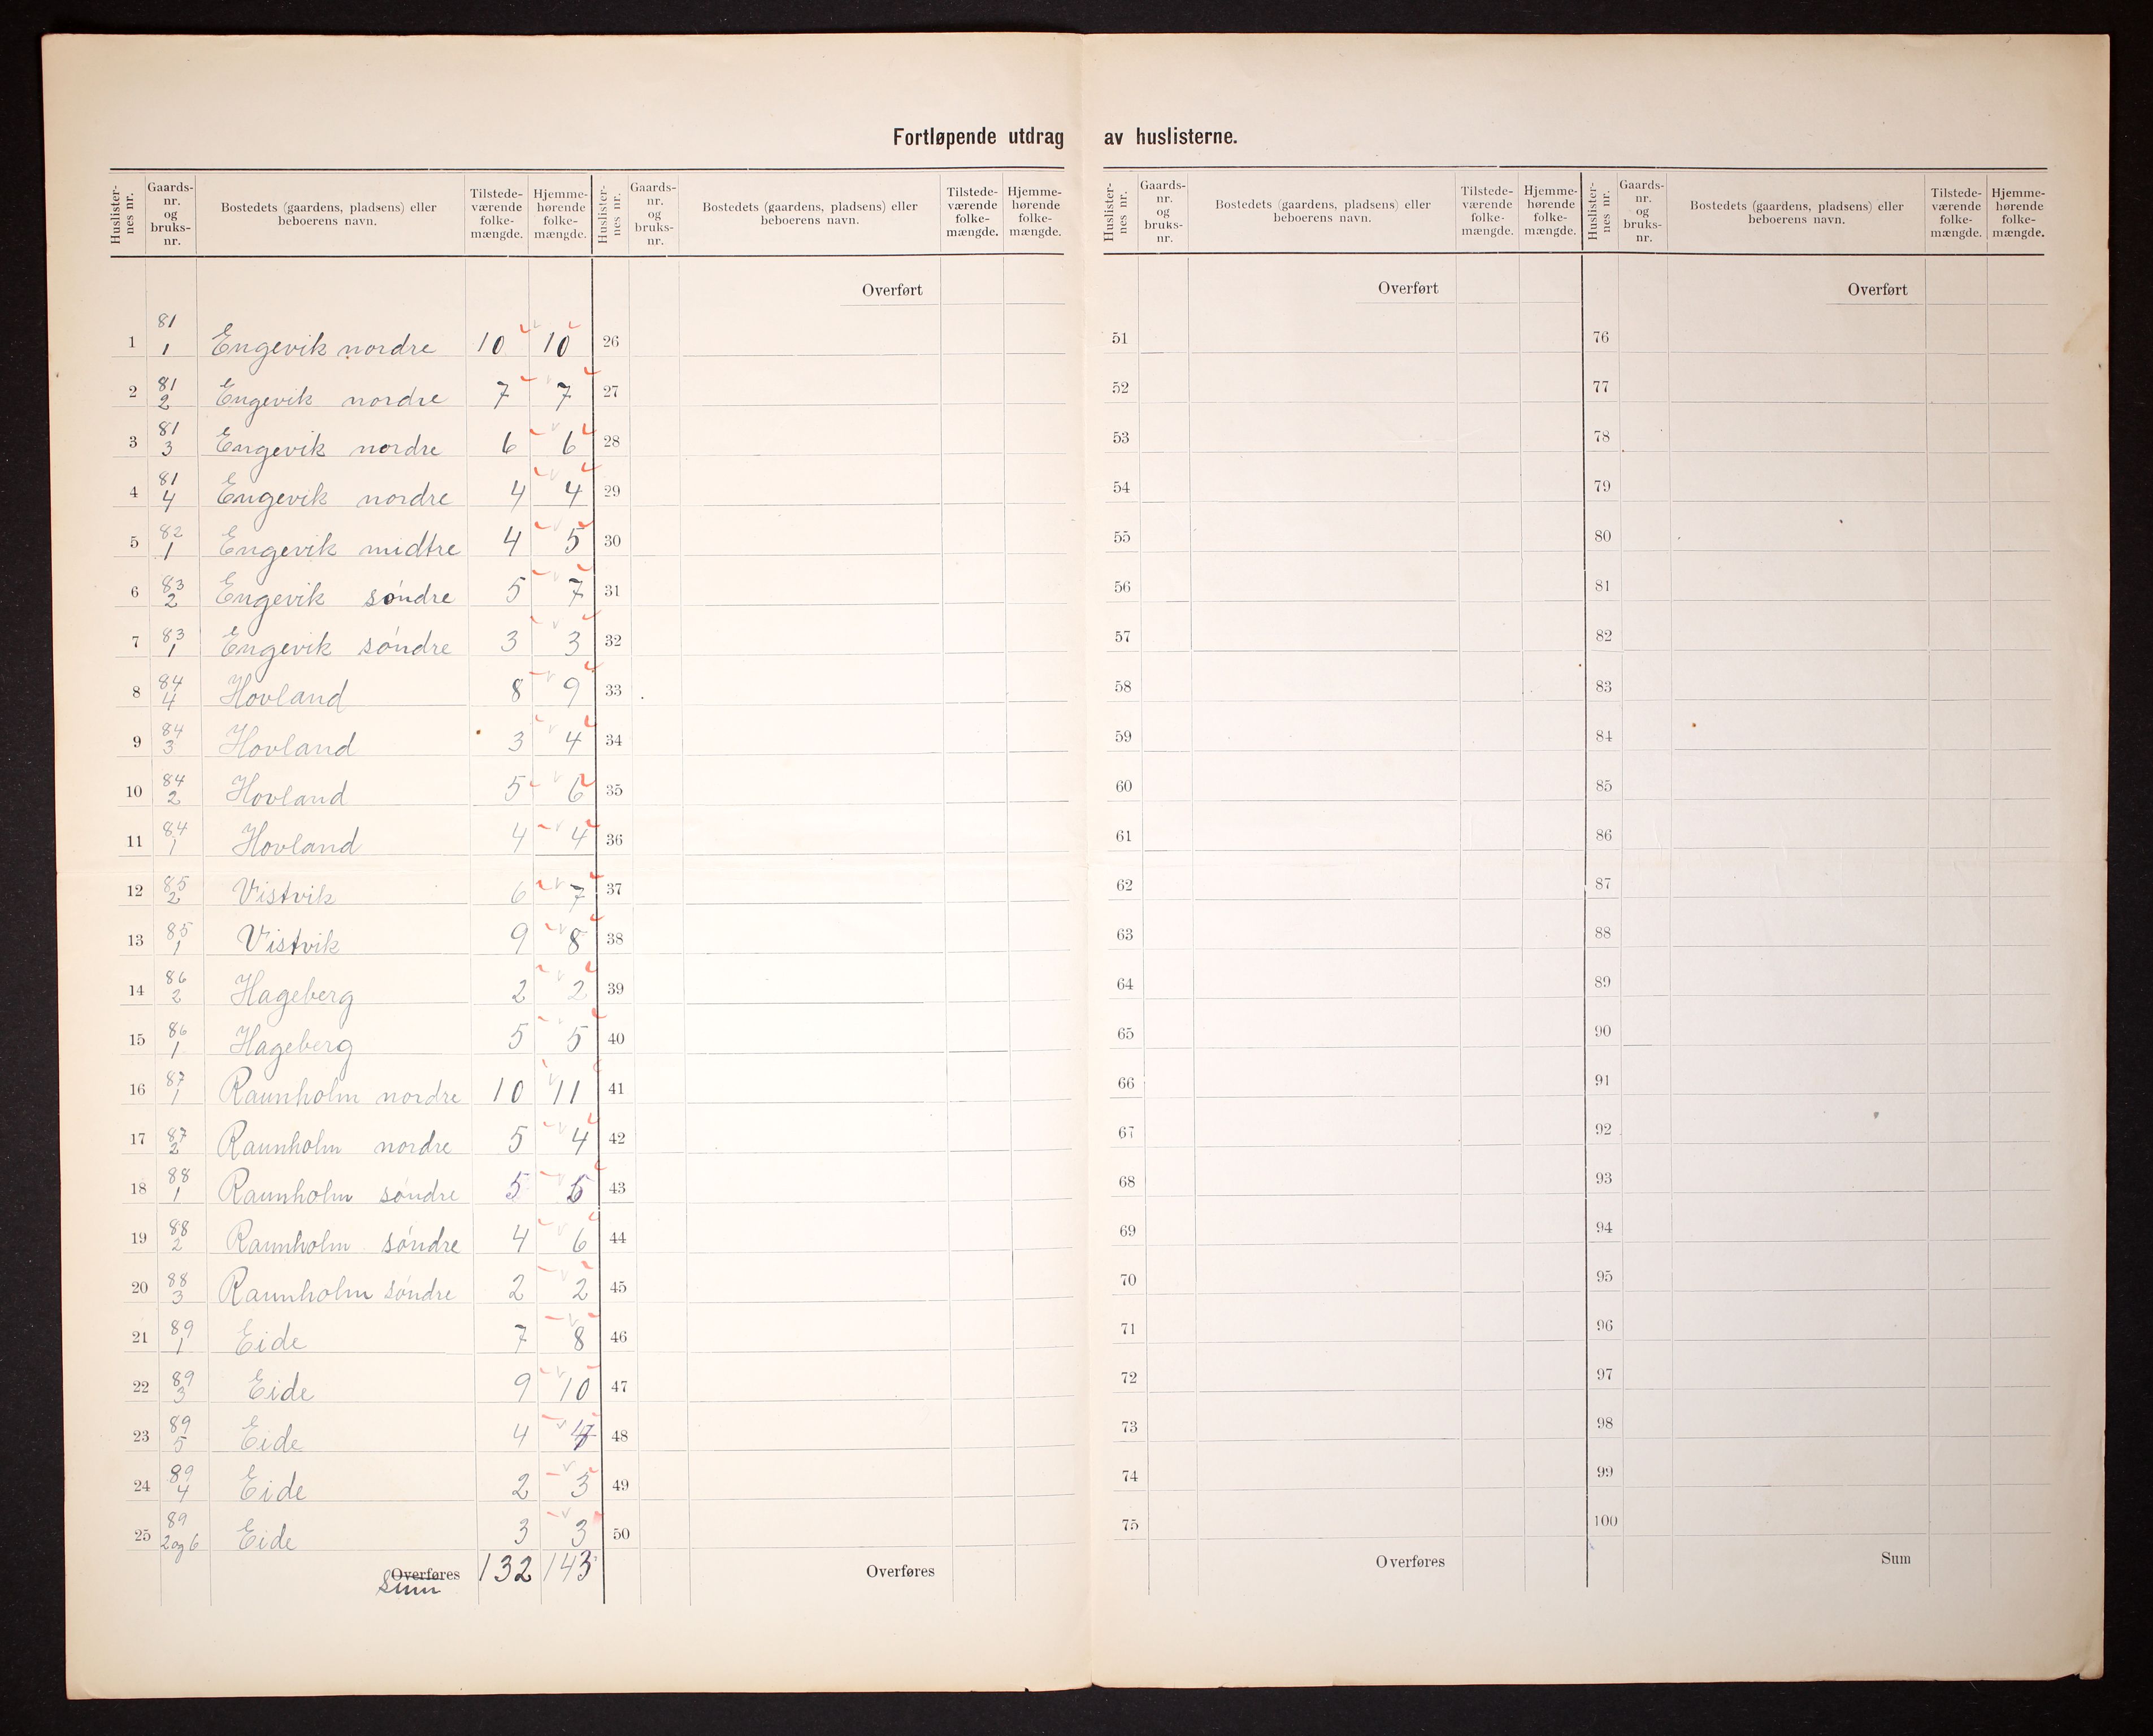 Fortløpende utdrag av huslisterne.
Huslisternes nr. Gaards-nr. og bruks-nr. Bostedets (gaardens, pladsens) eller beboerens navn. Tilstede-værende folke-mængde. Hjemme-hørende folke-mængde.
1 81/1 Engevik nordre 10 10
2 81/2 Engevik nordre 7 7
3 81/3 Engevik nordre 6 6
4 81/4 Engevik nordre 4 4
5 82/1 Engevik midtre 4 5
6 83/2 Engevik søndre 5 7
7 83/1 Engevik søndre 3 3
8 84/4 Hovland 8 9
9 84/3 Hovland 3 4
10 84/2 Hovland 5 6
11 84/1 Hovland 4 4
12 85/2 Vistvik 6 7
13 85/1 Vistvik 9 8
14 86/2 Hageberg 2 2
15 86/1 Hageberg 5 5
16 87/1 Raunholm nordre 10 11
17 87/2 Raunholm nordre 5 4
18 88/1 Raunholm søndre 5 5
19 88/2 Raunholm søndre 4 6
20 88/3 Raunholm søndre 2 2
21 89/1 Eide 7 8
22 89/3 Eide 9 10
23 89/5 Eide 4 4
24 89/4 Eide 2 3
25 89/2 og 6 Eide 3 3
Overføres
Sum 132 143
Huslisternes nr. Gaards-nr. og bruks-nr. Bostedets (gaardens, pladsens) eller beboerens navn. Tilstede-værende folke-mængde. Hjemme-hørende folke-mængde.
Overført
26
27
28
29
30
31
32
33
34
35
36
37
38
39
40
41
42
43
44
45
46
47
48
49
50
Overføres
Huslisternes nr. Gaards-nr. og bruks-nr. Bostedets (gaardens, pladsens) eller beboerens navn. Tilstede-værende folke-mængde. Hjemme-hørende folke-mængde.
Overført
51
52
53
54
55
56
57
58
59
60
61
62
63
64
65
66
67
68
69
70
71
72
73
74
75
Overføres
Huslisternes nr. Gaards-nr. og bruks-nr. Bostedets (gaardens, pladsens) eller beboerens navn. Tilstede-værende folke-mængde. Hjemme-hørende folke-mængde.
Overført
76
77
78
79
80
81
82
83
84
85
86
87
88
89
90
91
92
93
94
95
96
97
98
99
100
Sum